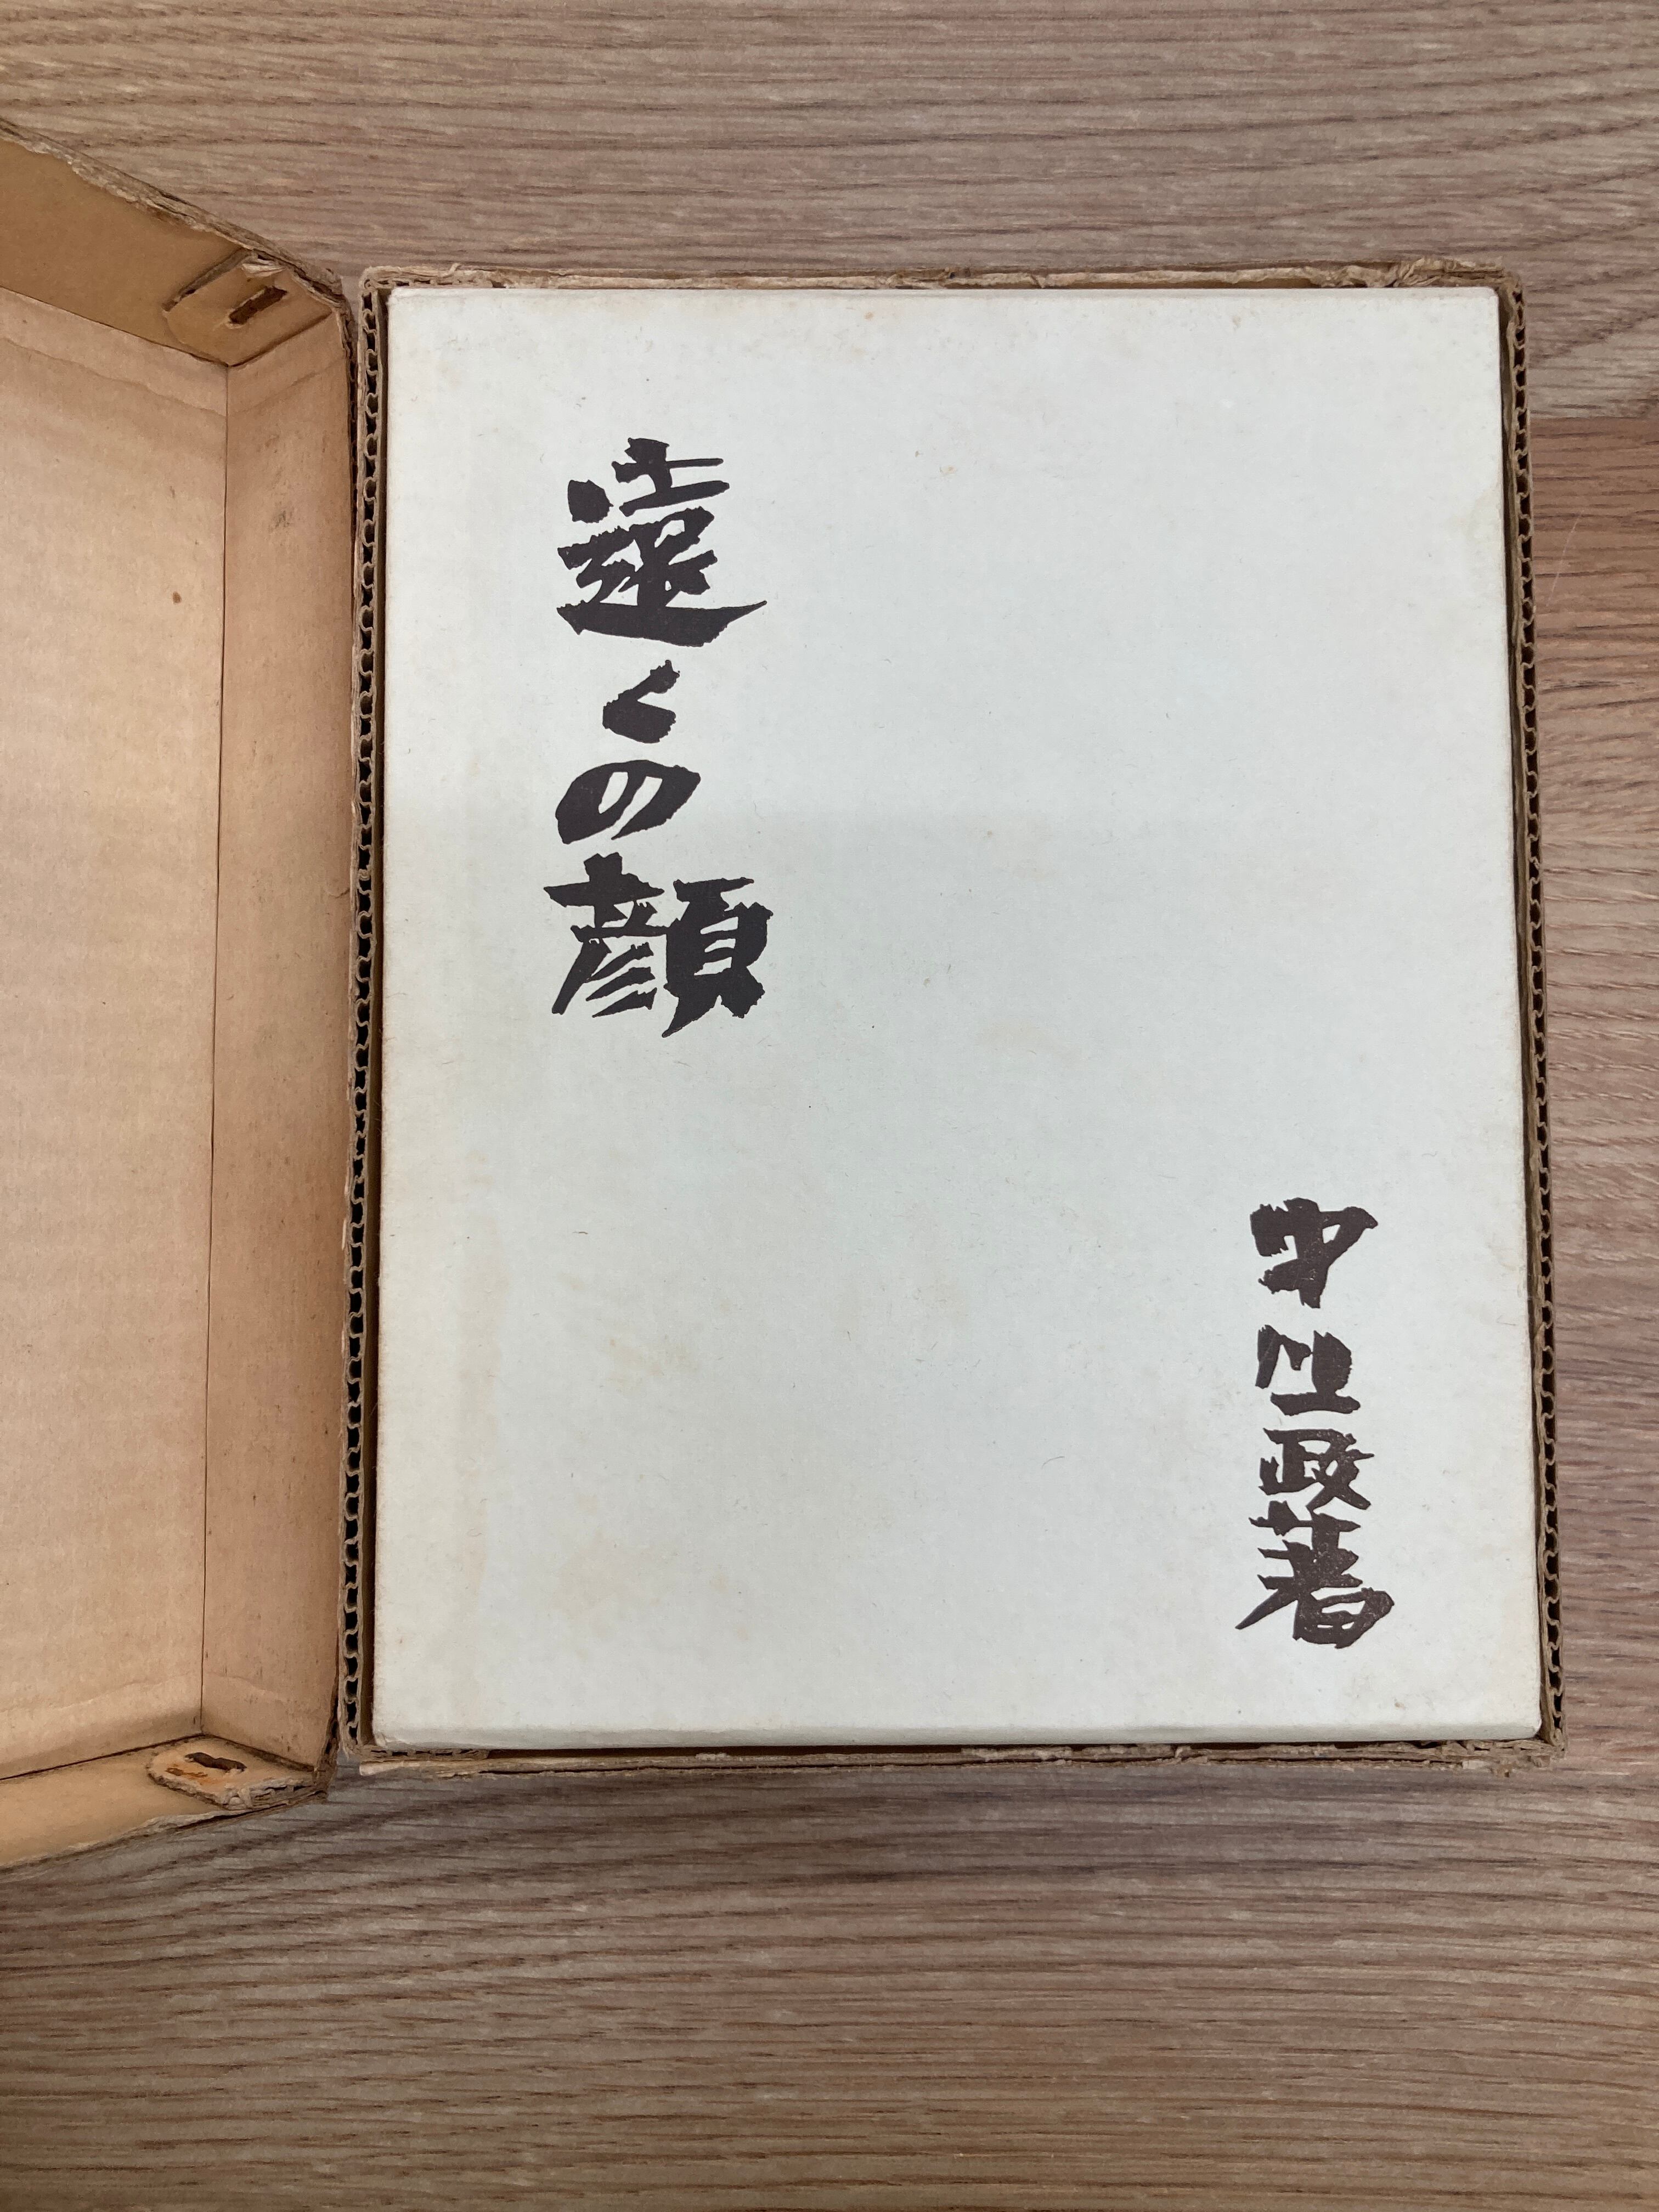 遠くの顔
中川一政著